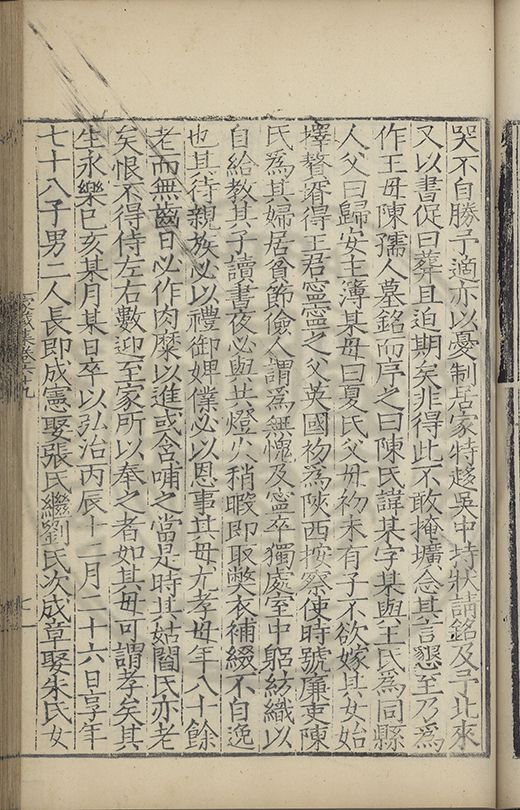 哭不自勝予適亦以憂制居家特趍吳中持狀請銘及予北來
又以書促曰葬且迫期矣非得此不敢掩壙念其言懇至乃為
作王母陳孺人墓銘而序之曰陳氏諱某字某與王氏為同縣
人父曰歸安主簿某母曰夏氏父母初未有子不欲嫁其女始
擇贅壻得王君寍寍之父英國初為陝西按察使時號廉吏陳
氏為其婦居貧節儉人謂為無愧及寍卒獨處室中躬紡織以
自給教其子讀書夜必與共燈火稍暇即取弊衣補綴不自逸
也其待親族必以禮御婢僕必以恩事其母尤孝母年八十餘
老而無齒日必作肉糜以進或含哺之當是時其姑閻氏亦老
矣恨不得侍左右數迎至家所以奉之者如其母可謂孝矣其
生永樂己亥某月某日卒以弘治丙辰十二月二十六日享年
七十八子男二人長即成憲娶張氏繼劉氏次成章娶朱氏女
家藏集卷六十九